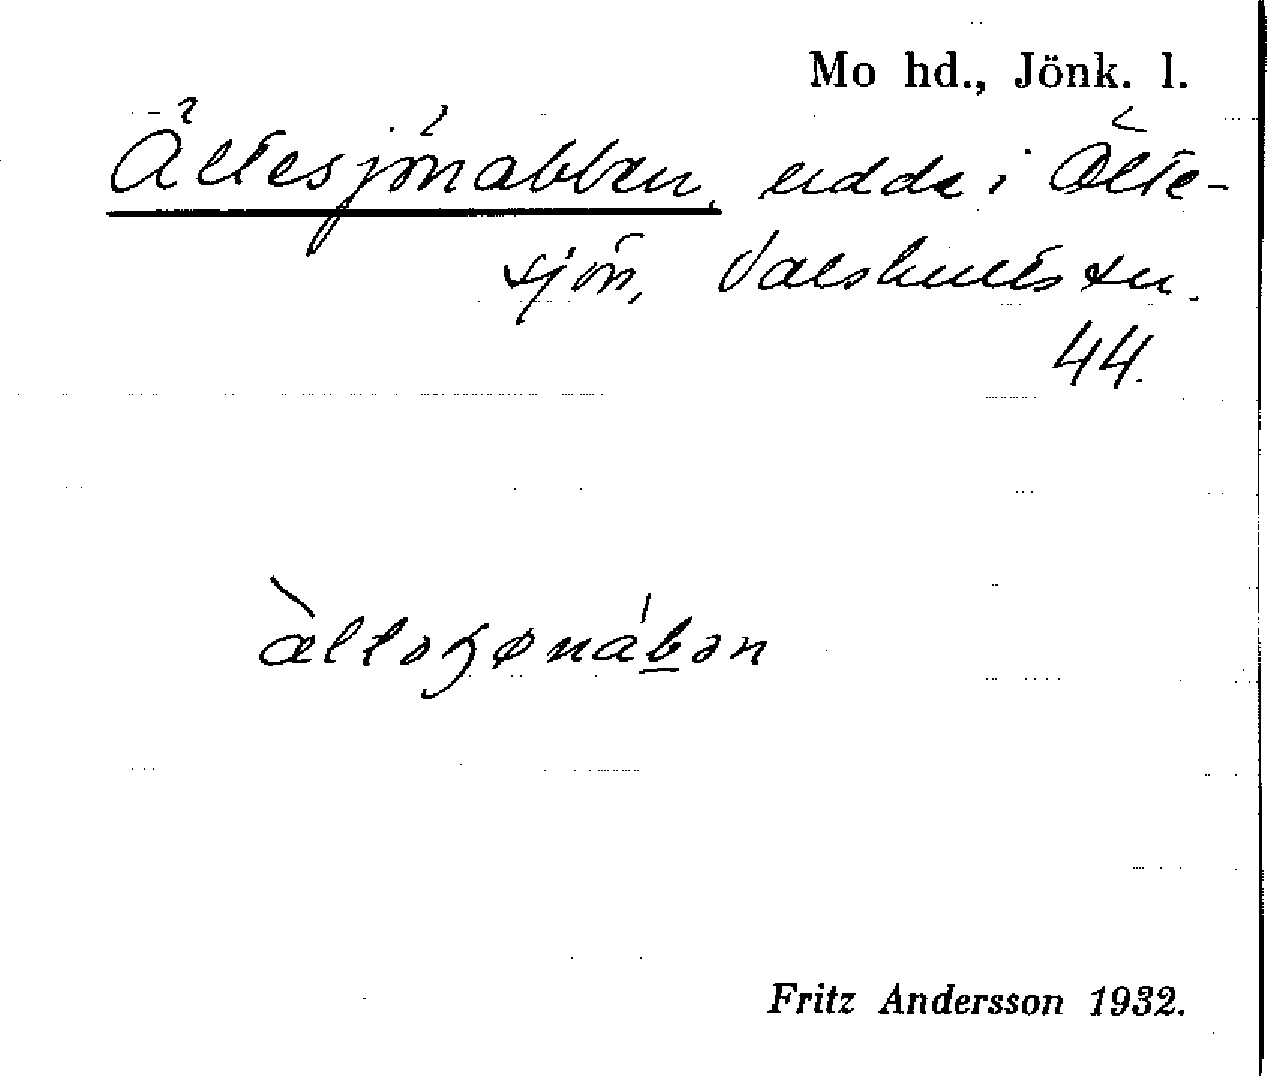 Mo hd., Jönk. l.
Ältesjönabben, udde i Älte-
sjön, Valshults sn.
44.
ὰltəʒønábən
Fritz Andersson 1932.